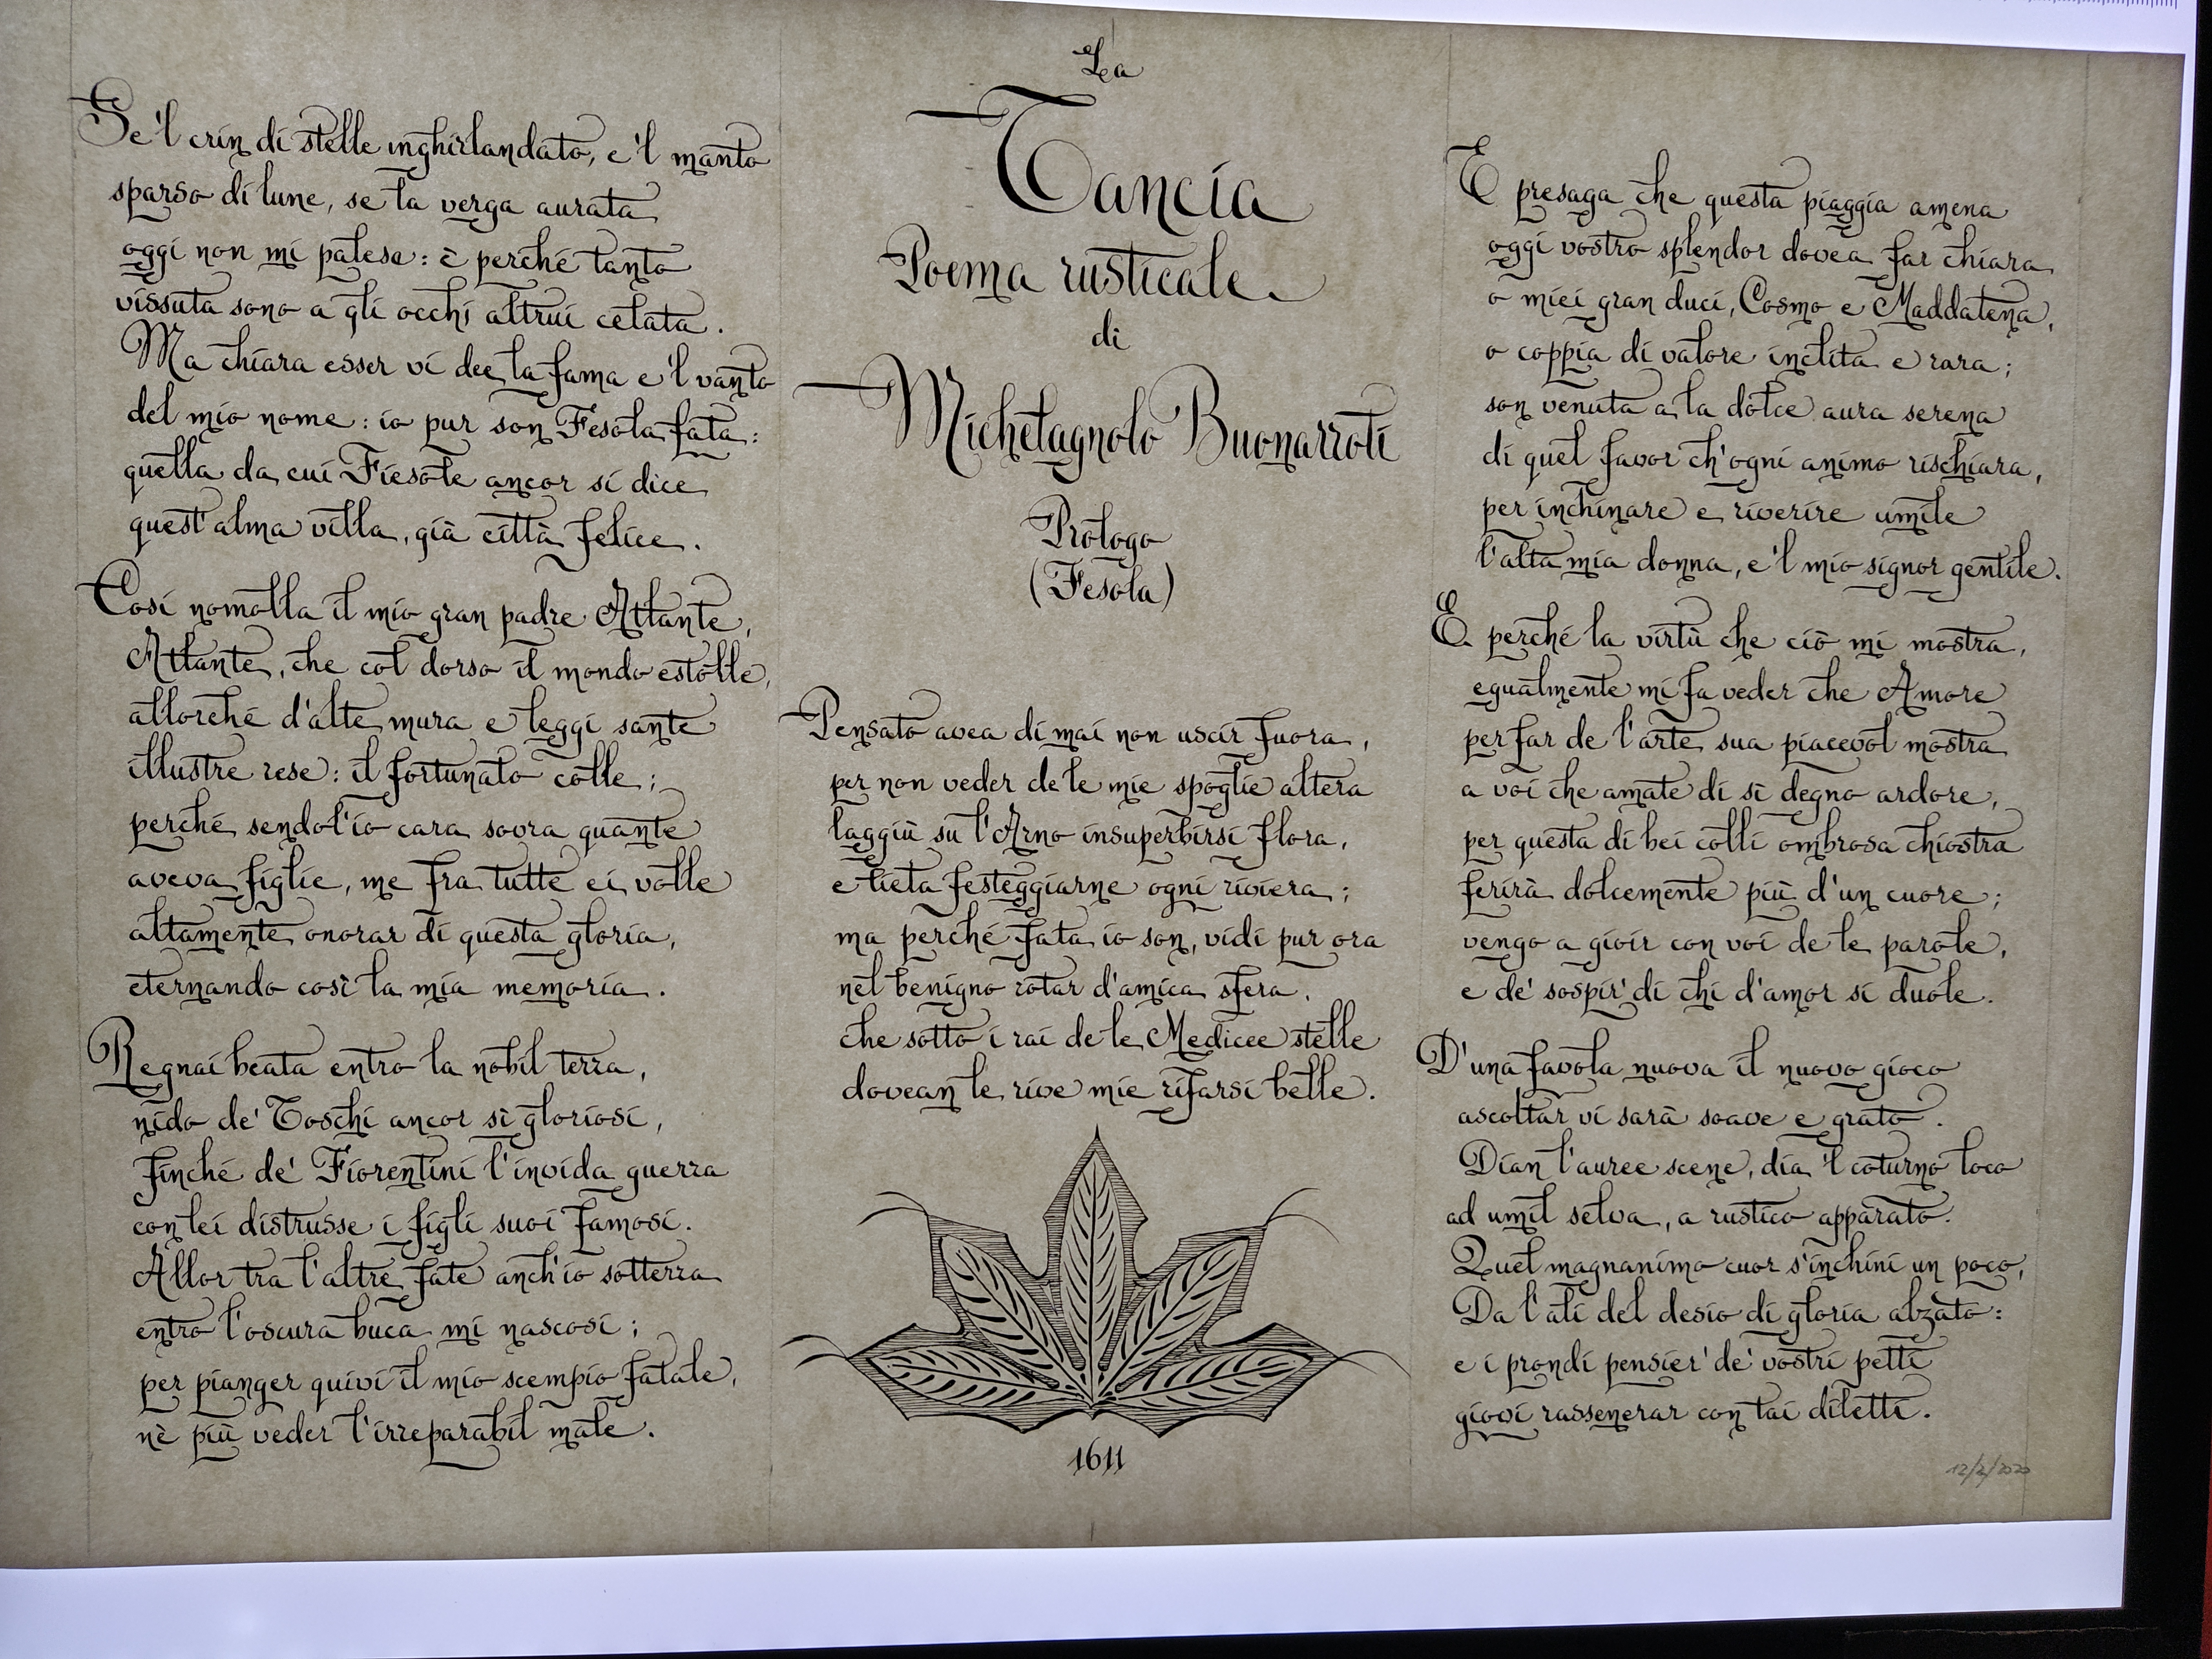 Se 'l crin di stelle inghirlandato, e 'l manto
sparso di lune, se la verga aurata
oggi non mi palesa: è perché tanto
vissuta sono a gli occhi altrui celata.
Ma chiara esser vi dee la fama e 'l vanto
del mio nome: io pur son Fesola fata:
quella da cui Fiesole ancor si dice
quest'alma villa, già città felice.
Così nomolla il mio gran padre Atlante,
Atlante, che col dorso il mondo estolle,
allorché d'alte mura e leggi sante
illustre rese: il fortunato colle;
perché sendol'io cara sovra quante
aveva figlie, me fra tutte ei volle
altamente onorar di questa gloria,
eternando così la mia memoria.
Regnai beata entro la nobil terra,
nido de' Toschi ancor sì gloriosi,
finché de' Fiorentini l'invida guerra
con lei distrusse i figli suoi famosi.
Allor tra l'altre fate anch'io sotterra
entro l'oscura buca mi nascosi;
per pianger quivi il mio scempio fatale,
nè più veder l'irreparabil male.
La
Tancia
Poema rusticale
di
Michelagnolo Buonarroti
Prologo
(Fesola)
Pensato avea di mai non uscir fuora,
per non veder de le mie spoglie altera
laggiù su l'Arno insuperbirsi flora,
e lieta festeggiarne ogni riviera;
ma perché fata io son, vidi pur ora
nel benigno rotar d'amica sfera,
che sotto i rai de le Medicee stelle
dovean le rive mie rifarsi belle.
1611
E presaga che questa piaggia amena
oggi vostro splendor dovea far chiara
o miei gran duci, Cosmo e Maddalena,
o coppia di valore inclita e rara;
son venuta a la dolce aura serena
di quel favor ch'ogni animo rischiara,
per inchinare e riverire umile
l'alta mia donna, e 'l mio signor gentile.
E perché la virtù che ciò mi mostra,
egualmente mi fa veder che Amore
per far de l'arte sua piacevol mostra
a voi che amate di sì degno ardore,
per questa di bei colli ombrosa chiostra
ferirà dolcemente più d'un cuore;
vengo a gioir con voi de le parole,
e de' sospir' di chi d'amor si duole.
D'una favola nuova il nuovo gioco
ascoltar vi sarà soave e grato.
Dian l'auree scene, dia 'l coturno loco
ad umil selva, a rustico apparato.
Quel magnanimo cuor s'inchini un poco,
Da l'ali del desio di gloria alzato:
e i prondi pensier' de' vostri petti
giovi rasserenar con tai diletti.
12/2/2020